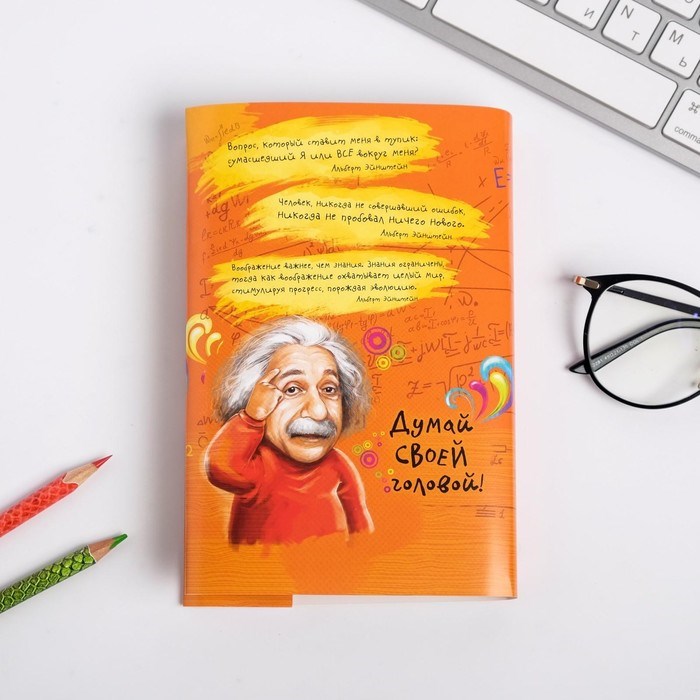 Вопрос, который ставит меня в тупик:
сумасшедший Я или ВСЕ вокруг меня?
Альберт Эйнштейн
Человек, никогда не совершавший ошибок,
никогда не пробовал ничего нового.
Альберт Эйнштейн
Воображение важнее, чем знания. Знания ограничены,
тогда как воображение охватывает целый мир,
стимулируя прогресс, порождая эволюцию.
Альберт Эйнштейн
Думай
СВОЕЙ
головой!
E=
И
Т
Ь
М
command